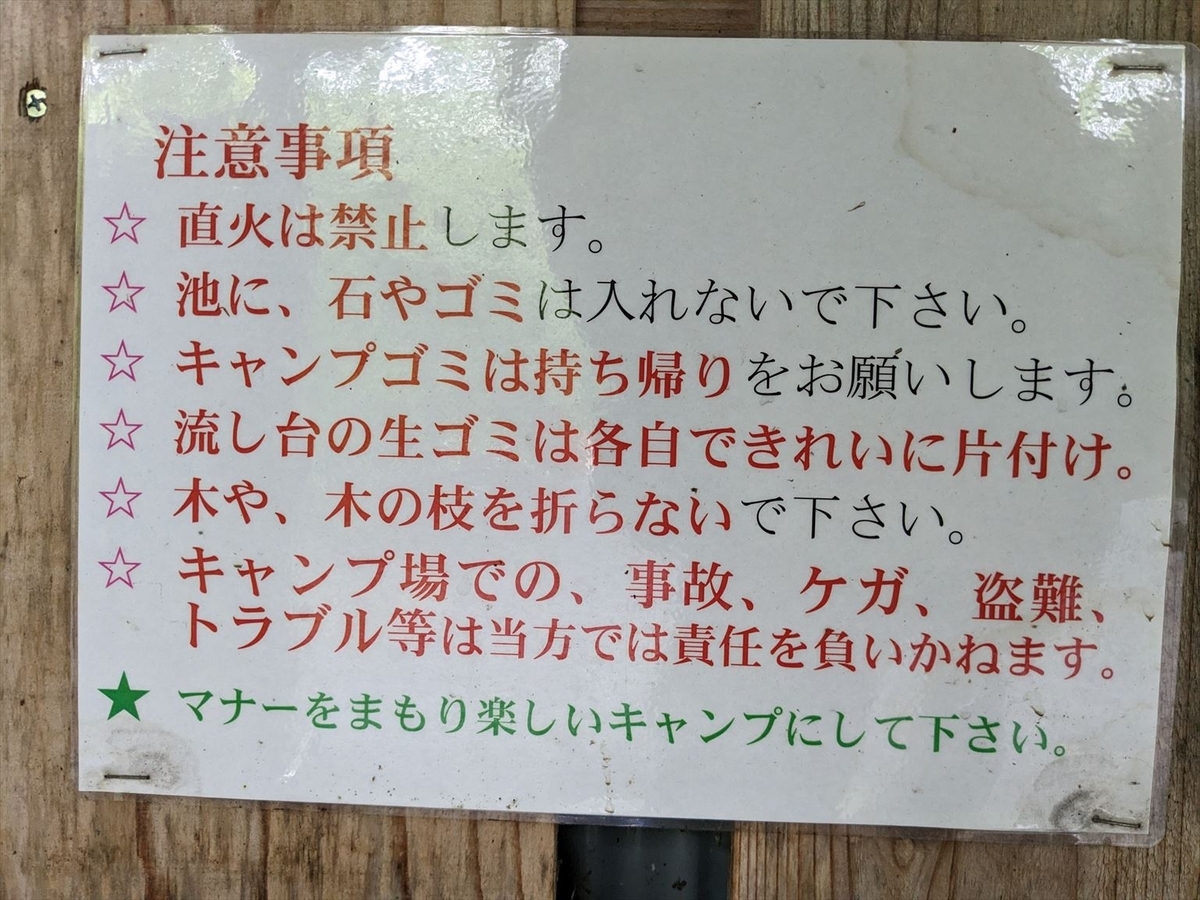 注意事項
☆ 直火は禁止します。
☆ 池に、石やゴミは入れないで下さい。
☆ キャンプゴミは持ち帰りをお願いします。
☆ 流し台の生ゴミは各自できれいに片付け。
☆ 木や、木の枝を折らないで下さい。
☆ キャンプ場での、事故、ケガ、盗難、
トラブル等は当方では責任を負いかねます。
★ マナーをまもり楽しいキャンプにして下さい。